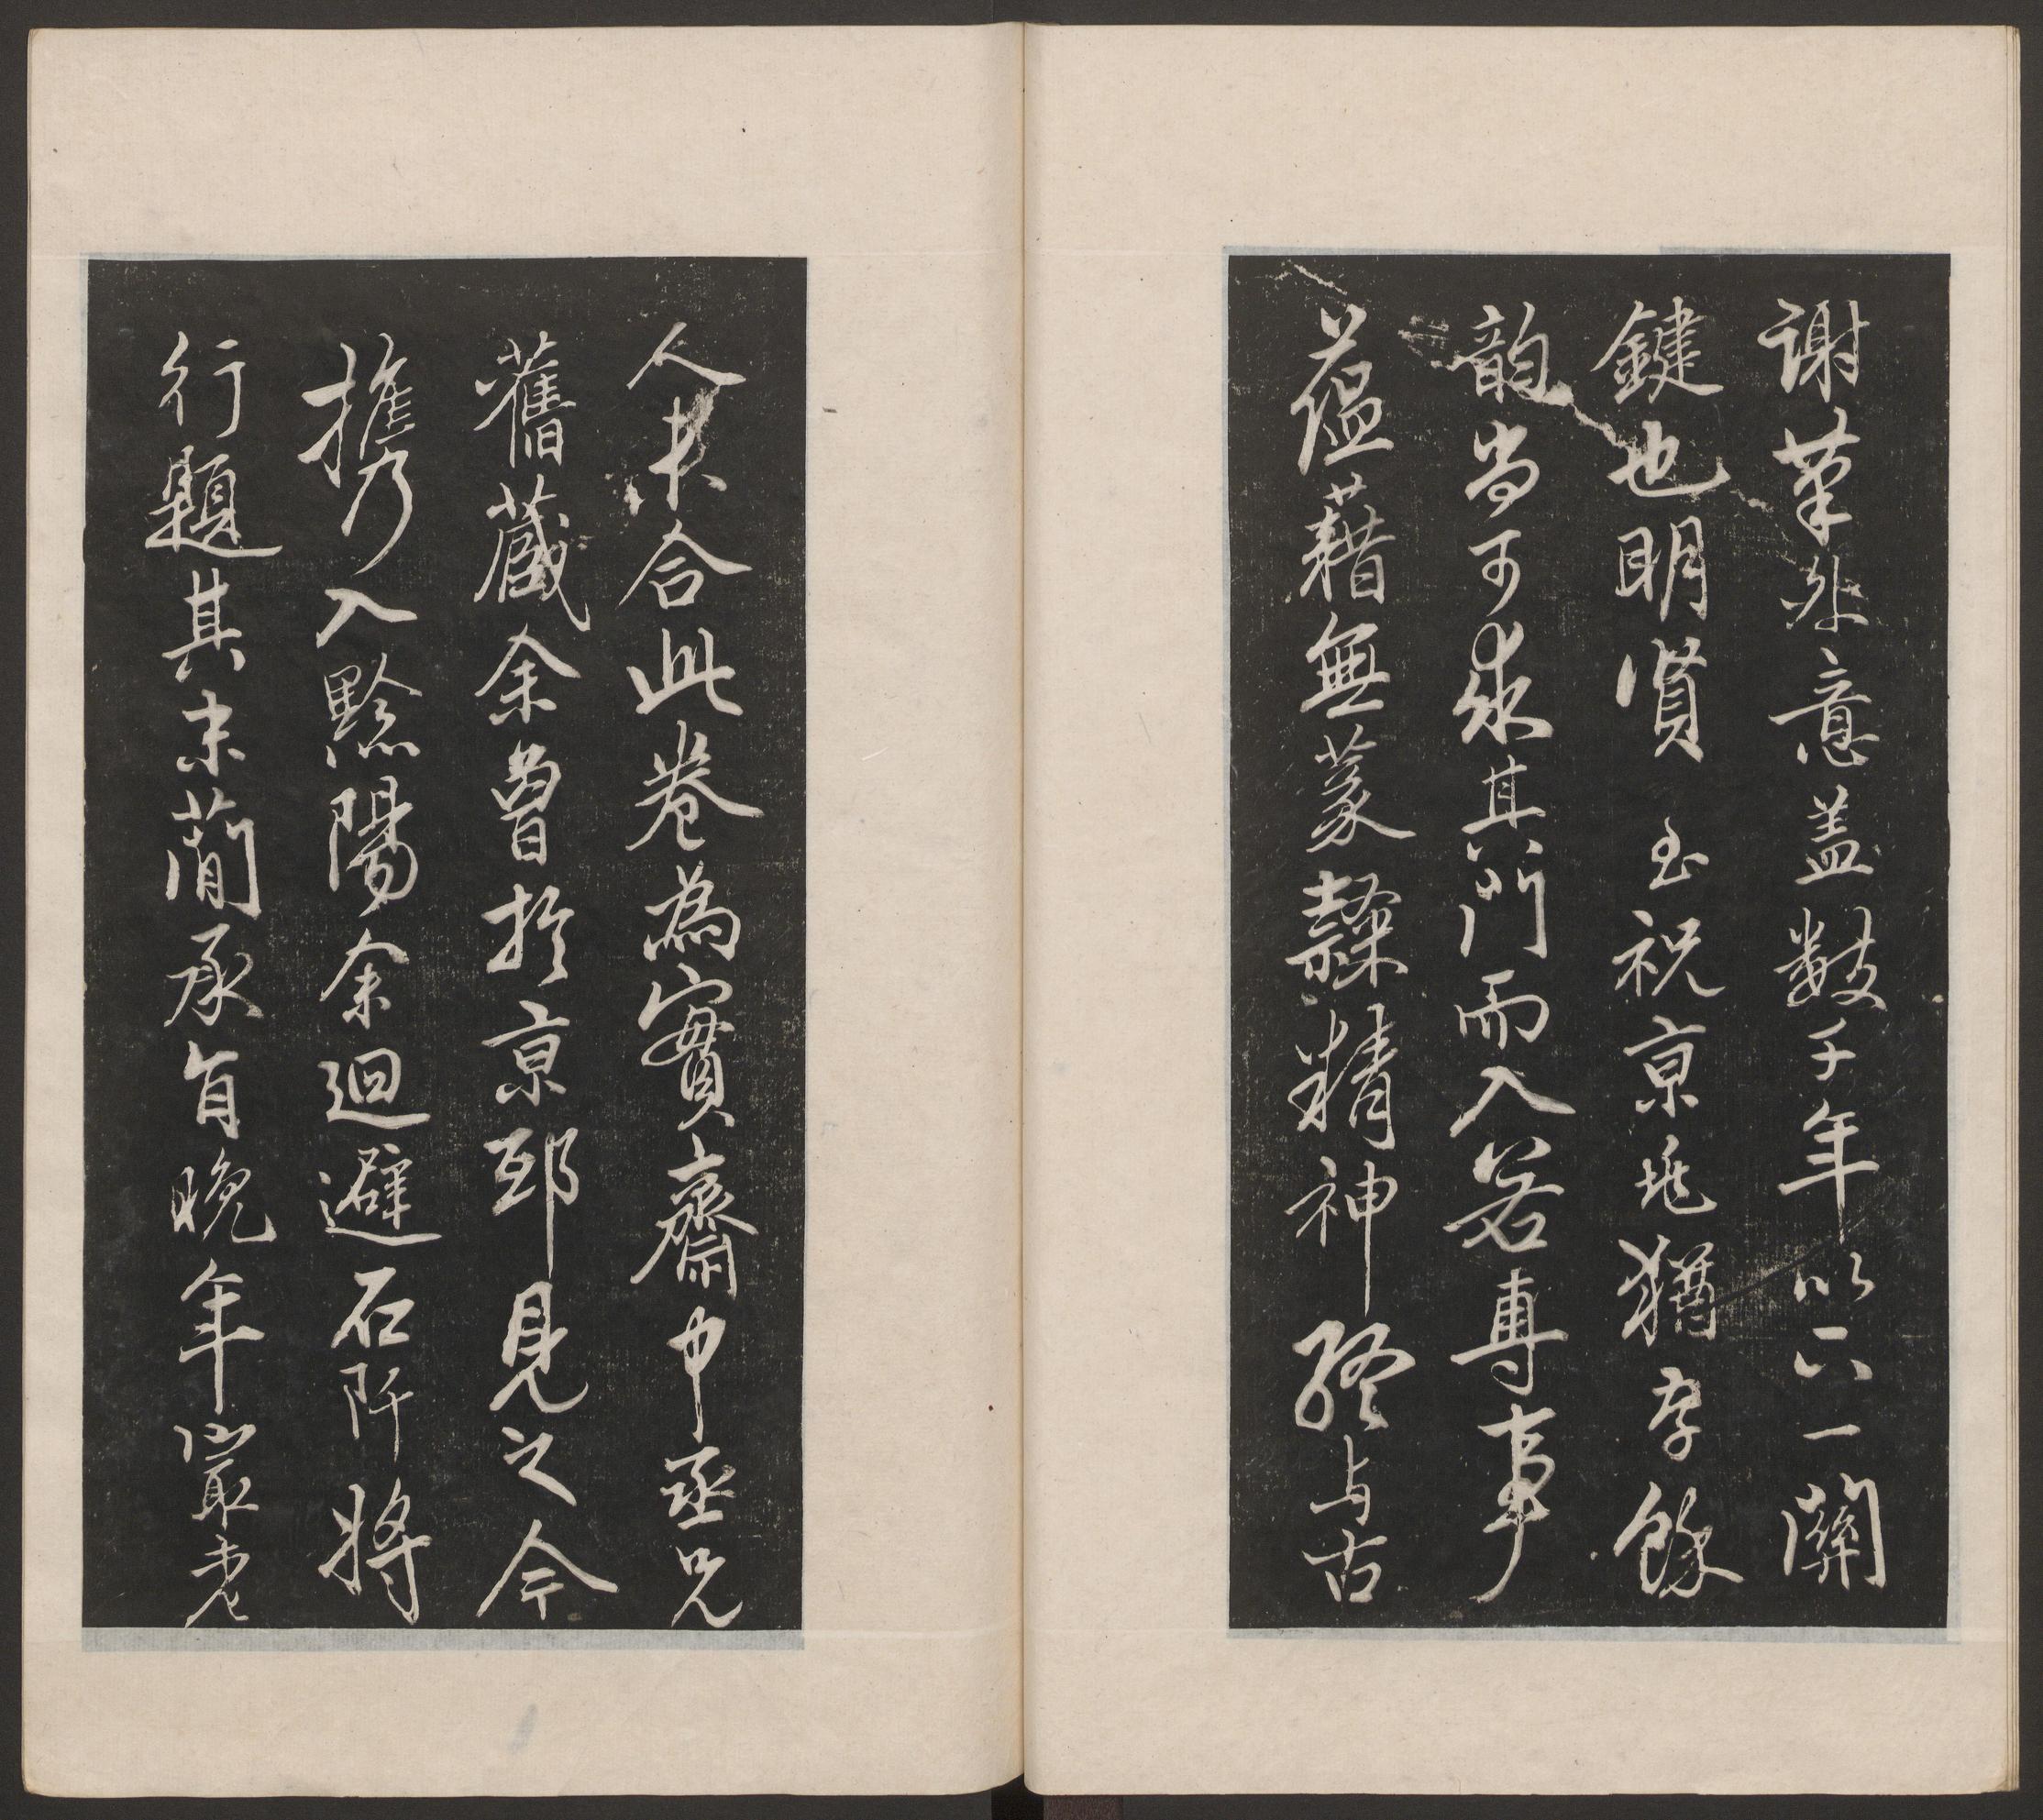 謝筆外意盖數千年以來一關
鍵也明賢至祝京兆猶存餘
韵尚可求其門而入若專事
蘊藉無篆隸精神終与古
人未合此卷為實齋中丞兄
舊藏余曾於京邸見之今
攜乃入黔陽余迴避石阡將
行題其末蘭承旨晚年冣老